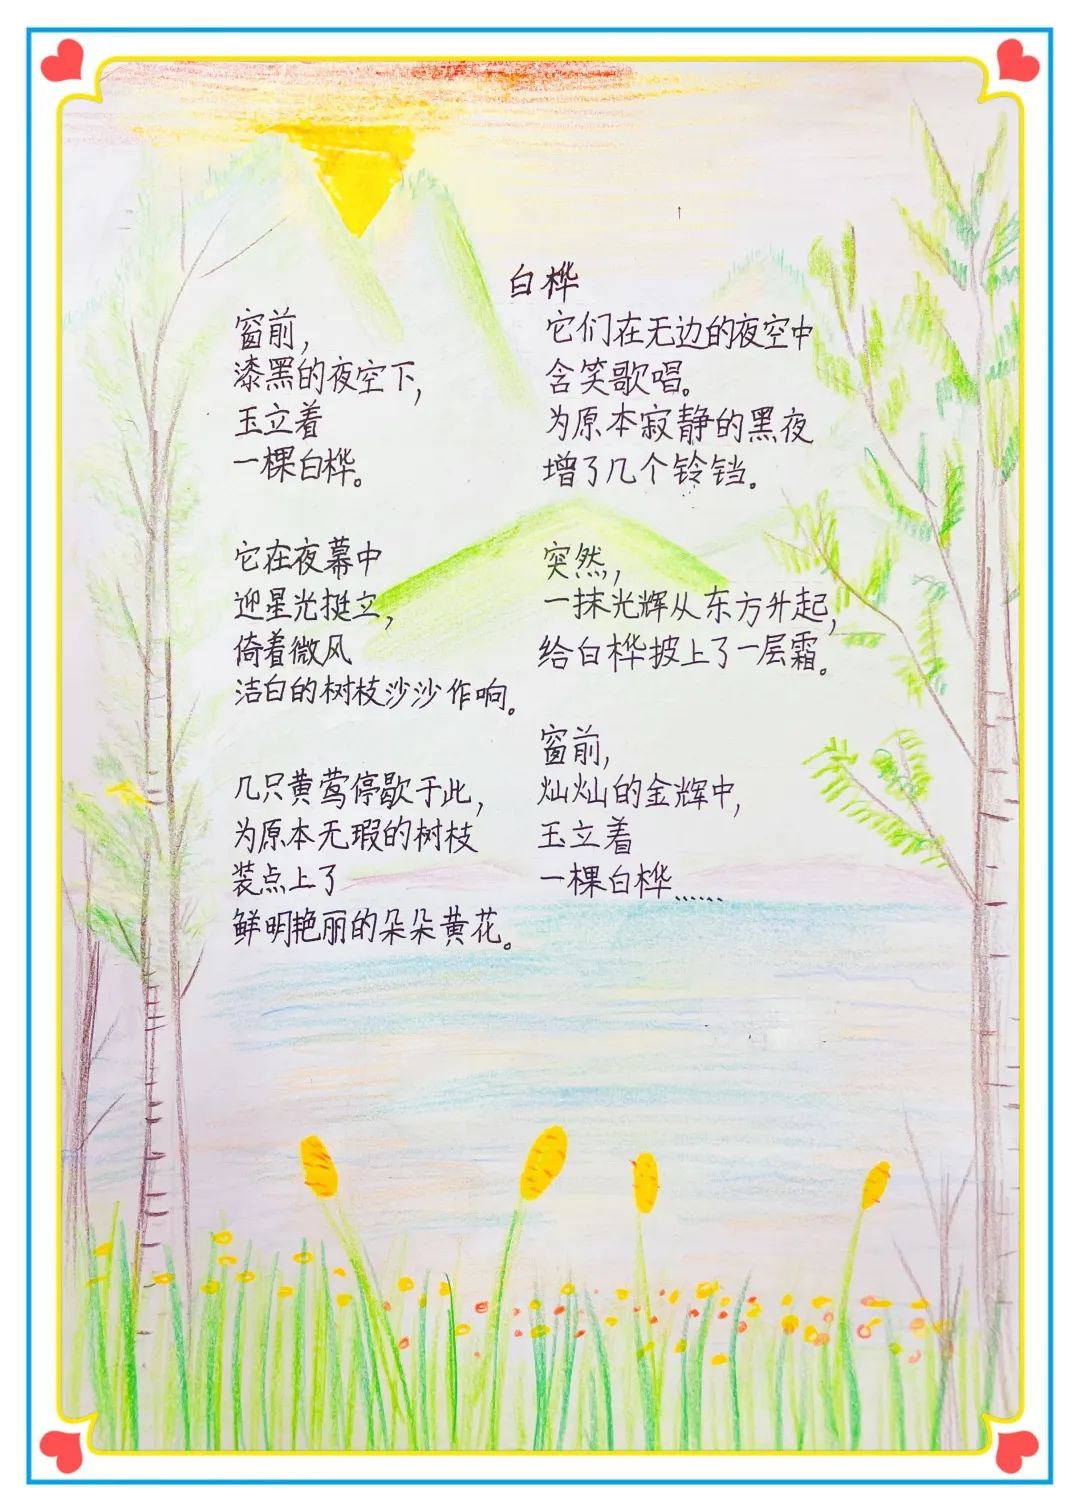 白桦
窗前，
漆黑的夜空下，
玉立着
一棵白桦。
它在夜幕中
迎星光挺立，
倚着微风
洁白的树枝沙沙作响。
几只黄莺停歇于此，
为原本无瑕的树枝
装点上了
鲜明艳丽的朵朵黄花。
它们在无边的夜空中
含笑歌唱。
为原本寂静的黑夜
增了几个铃铛。
突然，
一抹光辉从东方升起，
给白桦披上了一层霜。
窗前，
灿灿的金辉中，
玉立着
一棵白桦……